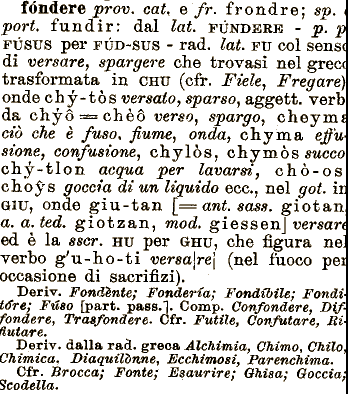 fóndere prov. cat. e fr. frondre; sp.
port. fundir: dal lat. FÚNDERE - p. p
FÚSUS per FÚD-SUS - rad. lat. FU col senso
di versare, spargere che trovasi nel greco
trasformata in CHU (cfr. Fiele, Fregare)
onde chý-tòs versato, sparso, aggett. verb
da chýô = chèô verso, spargo, cheyma
ciò che è fuso, fiume, onda, chyma effu-
sione, confusione, chylòs, chymòs succo
chý-tlon acqua per lavarsi, chò-os
choŷs goccia di un liquido ecc., nel got. in
GIU, onde giu-tan [= ant. sass. giotan,
a. a. ted. giotzan, mod. giessen] versare
ed è la sscr. HU per GHU, che figura nel
verbo g'u-ho-ti versa|re| (nel fuoco per
occasione di sacrifizi).
Deriv. Fondènte; Fonderìa; Fondìbile; Fondi-
tóre; Fúso [part. pass.]. Comp. Confondere, Dif-
fondere, Trasfondere. Cfr. Futile, Confutare, Ri-
fiutare.
Deriv. dalla rad. greca Alchimia, Chimo, Chilo,
Chimica, Diaquilònne, Ecchimosi, Parenchima.
Cfr. Brocca; Fonte; Esaurire; Ghisa; Goccia;
Scodella.